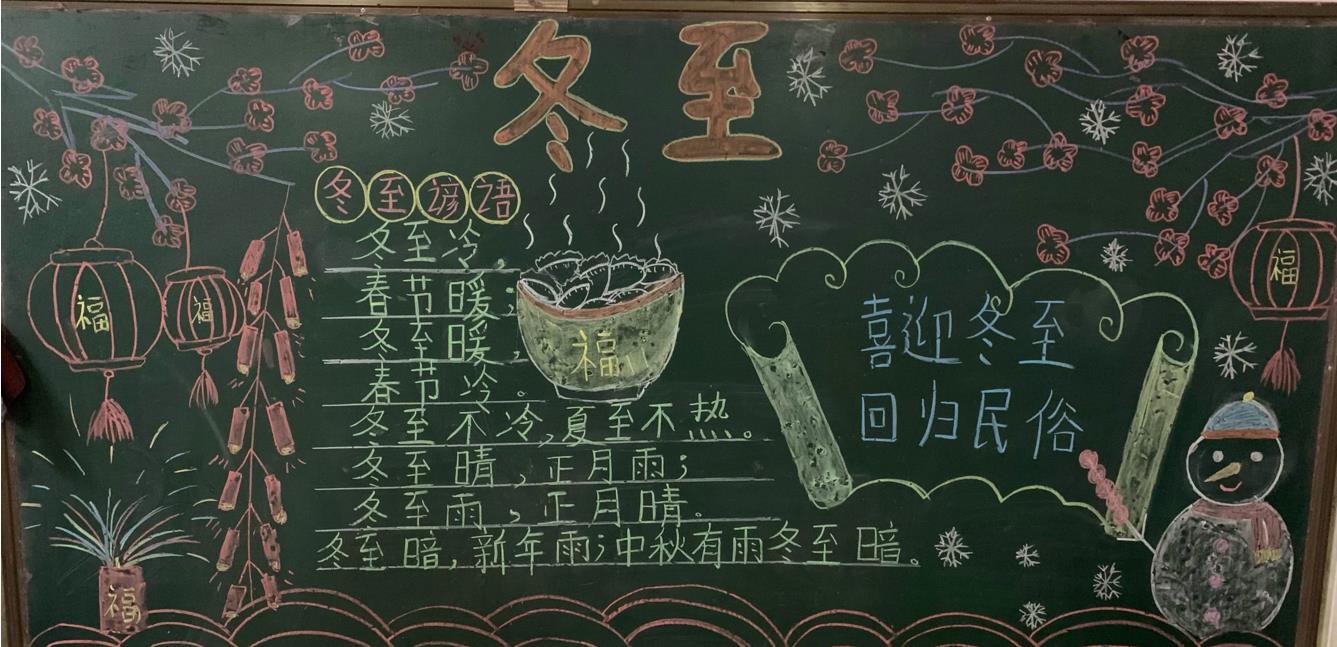 冬至
冬至谚语
冬至冷,
春节暖;
冬至暖,
春节冷。
冬至不冷,夏至不热。
冬至晴,正月雨;
冬至雨,正月晴。
冬至暗,新年雨;中秋有雨冬至暗。
福
喜迎冬至
回归民俗
福
福
福
福